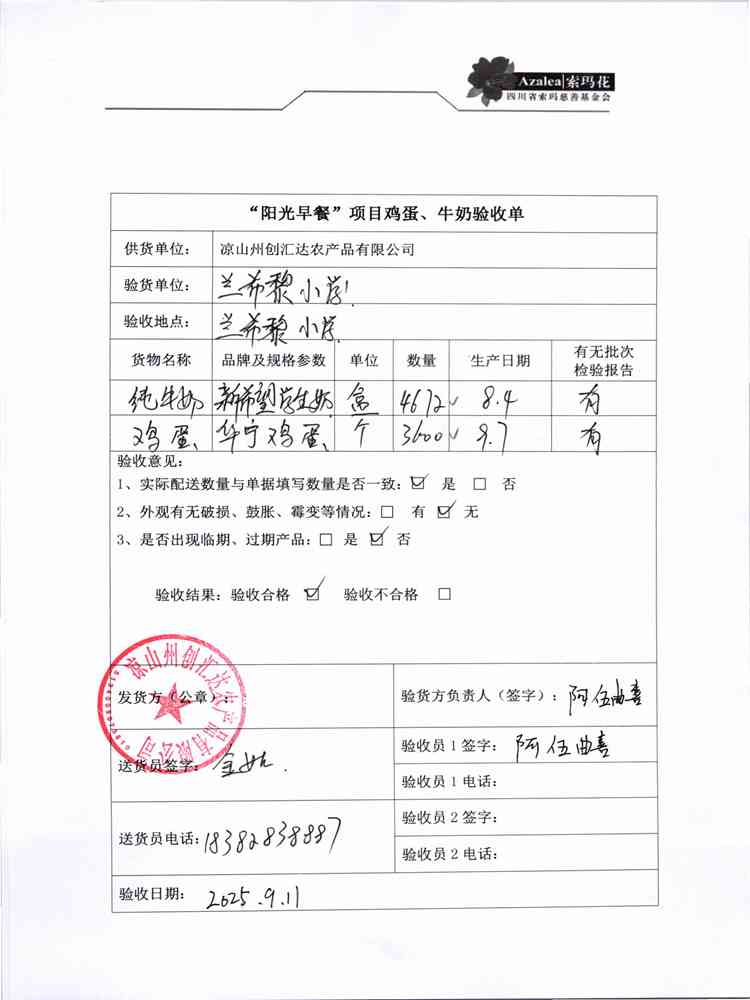 Azalea|索玛花
四川省索玛慈善基金会
“阳光早餐”项目鸡蛋、牛奶验收单
供货单位： 凉山州创汇达农产品有限公司
验货单位： 兰希黎小学
验收地点： 兰希黎小学
货物名称 品牌及规格参数 单位 数量 生产日期 有无批次检验报告
纯牛奶 新希望学生奶 盒 4672 8.4 有
鸡蛋 华宁鸡蛋 个 3600 9.7 有
验收意见：
1、实际配送数量与单据填写数量是否一致：☑ 是 □ 否
2、外观有无破损、鼓胀、霉变等情况：□ 有 ☑ 无
3、是否出现临期、过期产品：□ 是 ☑ 否
验收结果：验收合格 ☑ 验收不合格 □
凉山州创汇达农产品有限公司
发货方（公章）： 验货方负责人（签字）：阿伍曲喜
送货员签字： 验收员 1 签字： 阿伍曲喜
验收员 1 电话：
送货员电话：18382838887 验收员 2 签字：
验收员 2 电话：
验收日期： 2025.9.11